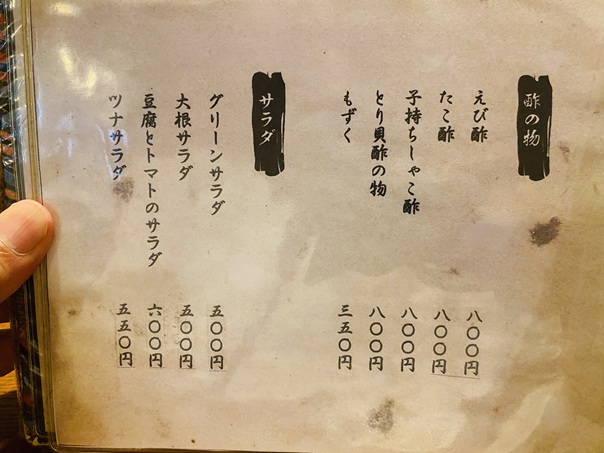 酢の物
えび酢 八〇〇円
たこ酢 八〇〇円
子持ちしゃこ酢 八〇〇円
とり貝酢の物 八〇〇円
もずく 三五〇円
サラダ
グリーンサラダ 五〇〇円
大根サラダ 五〇〇円
豆腐とトマトのサラダ 六〇〇円
ツナサラダ 五五〇円